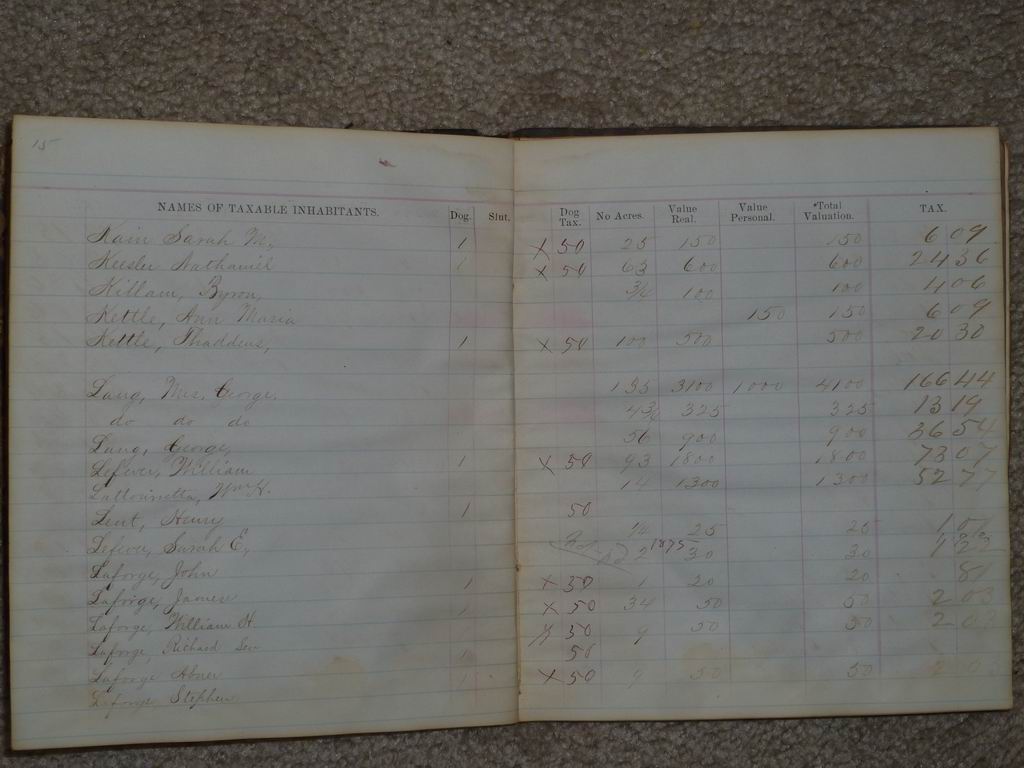 15
NAMES OF TAXABLE INHABITANTS. Dog. Slut. Dog Tax. No Acres. Value Real. Value Personal. Total Valuation. TAX.
Kain Sarah M, 1 X 50 25 150 150 6 09
Keesler Nathaniel 1 X 50 63 600 600 24 36
Killam, Byron, 3/4 100 100 4 06
Kettle, Ann Maria 150 150 6 09
Kettle, Thaddeus, 1 X 50 100 500 500 20 30
Lang, Mrs. George, 135 3100 1000 4100 166 44
do do do 325 325 13 19
Lang, George, 56 900 900 36 54
Lefever, William 1 X 50 93 1800 1800 73 07
Wm H. 14 1300 1300 52 77
Lent, Henry 1 50
Lefever, Sarah E, 1/4 25 25 1
1875 2 30 30 1 22
Laforge, John 1 X 50 1 20 20 81
Laforge, James 1 X 50 34 50 50 2 03
Laforge, William H. 1 50 9 50 50 2 03
Laforge, Richard 1 50
Laforge Abner 1 X 50 9 50 50 2 03
Laforge, Stephen